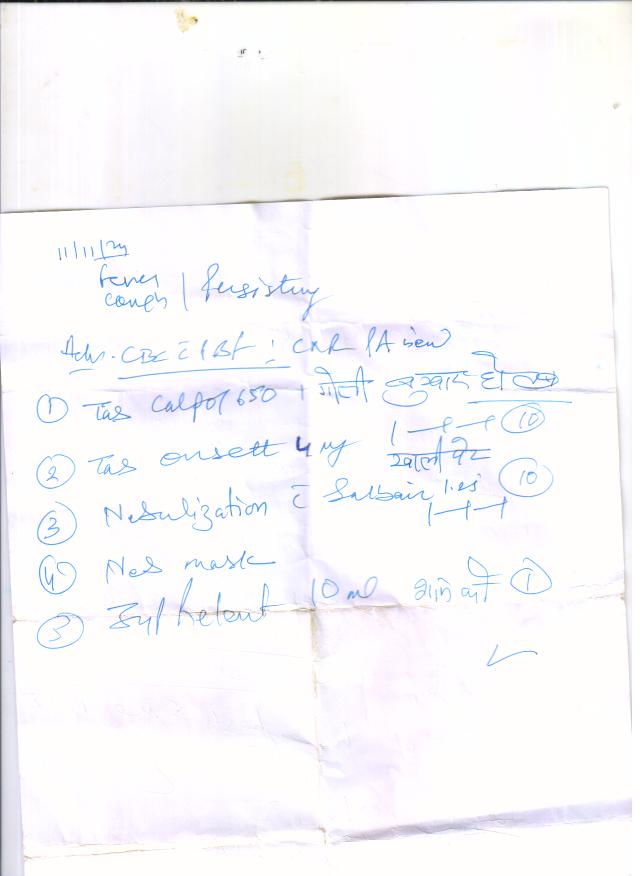 11/11/24
Fever
cough | Persisting
Adv. CBC c̄ PBF : CXR PA view
① Tab Calpol 650 1 गोली बुखार होने
② Tab onsett 4 mg 1 — + — + ⑩
खाली पेट
③ Nebulization c̄ Salbair 1.25 ⑩
| — + — +
④ Neb mask
⑤ Syp 10 ml शाम को ①